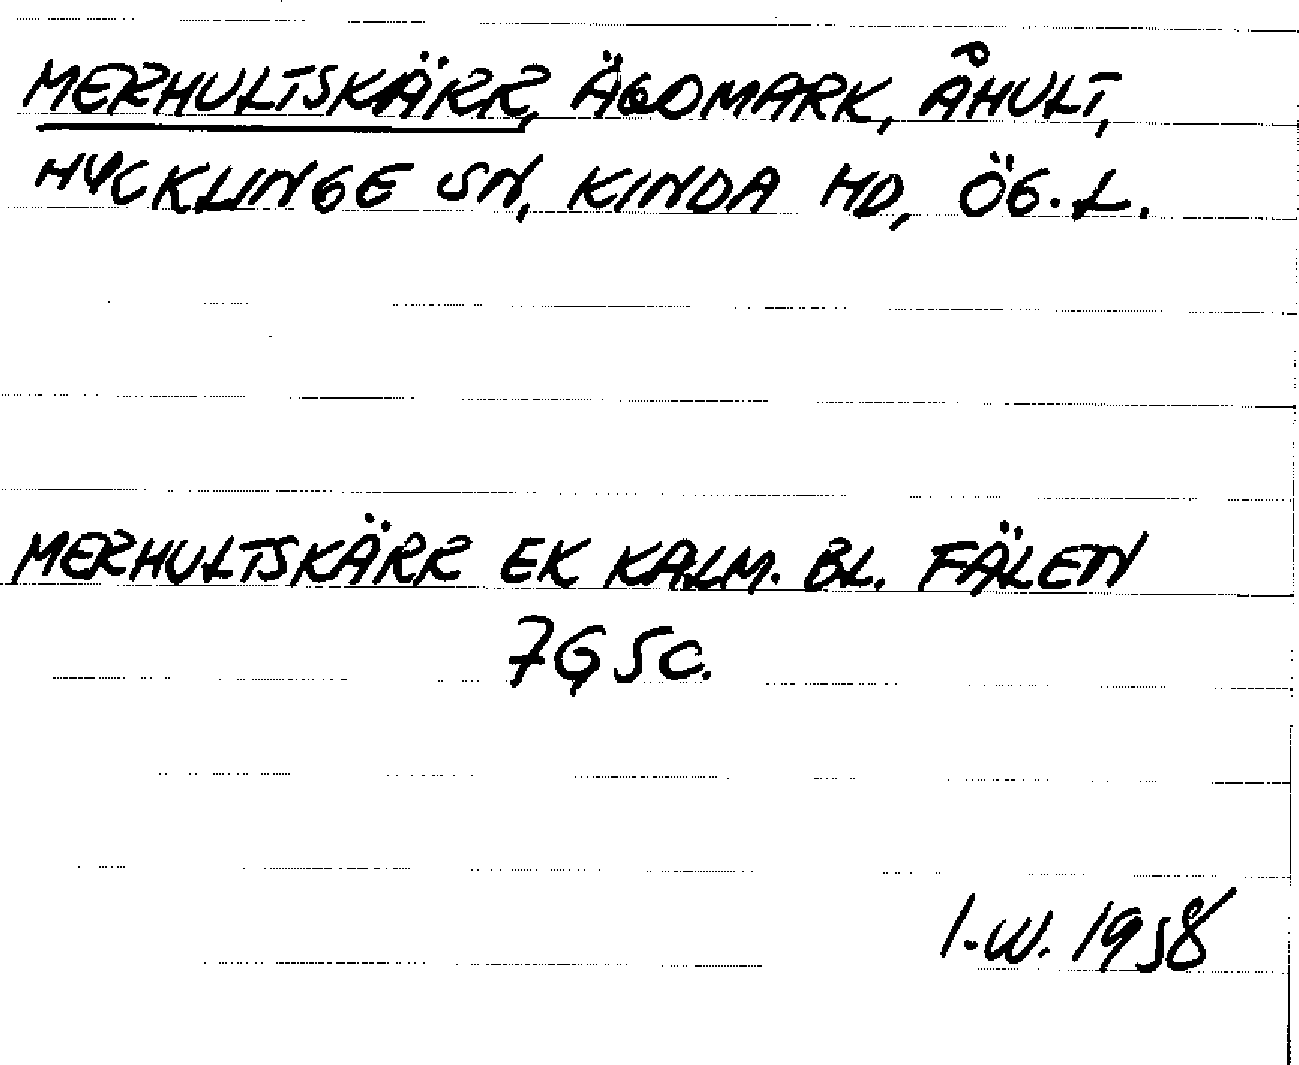 MERHULTSKÄRR, ÄGOMARK, ÅHULT,
HYCKLINGE SN, KINDA HD, ÖG.L.
MERHULTSKÄRR EK KALM. BL. FÄLEN
7G 5c.
I.W. 1958